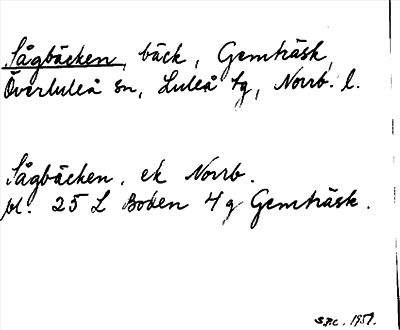 Sågbäcken, bäck, Gemträsk,
Överluleå sn, Luleå tg, Norrb. l.
Sågbäcken. ek Norrb.
bl. 25 L Boden 4 g Gemträsk.
1951.